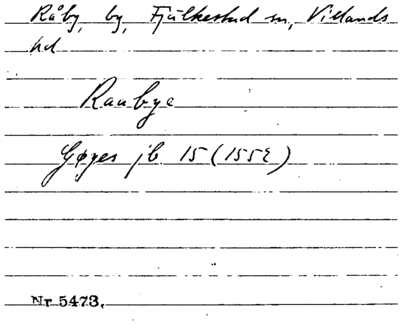 Råby, by, Fjälkestad sn, Villands
hd
Raabye
Gøyes jb 15 (1552)
Nr 5473.